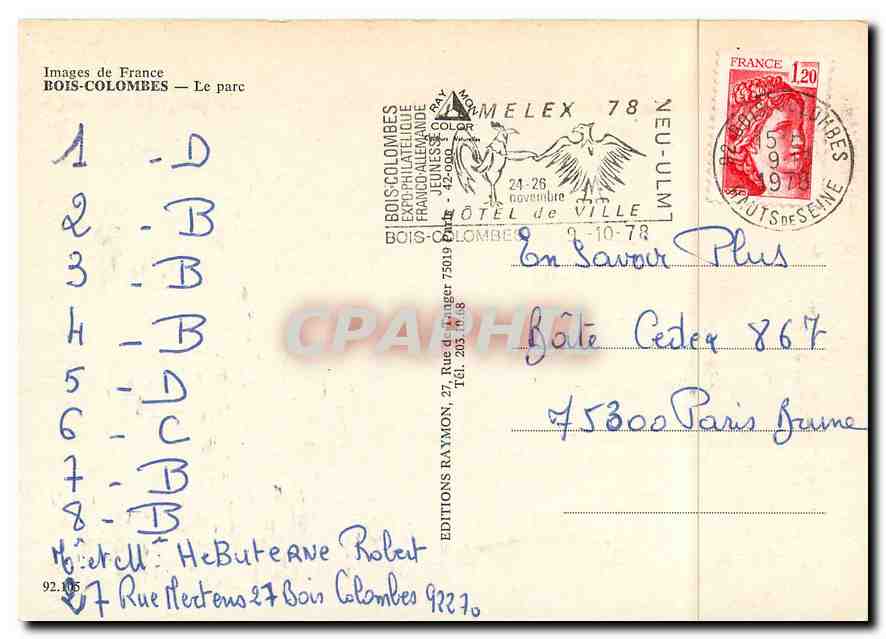 Images de France
BOIS-COLOMBES — Le parc
1 - D
2 - B
3 - B
4 - B
5 - D
6 - C
7 - B
8 - B
HEBUTERNE Robert
27 Rue Mertens 27 Bois Colombes 92270
92.105
EDITIONS RAYMON, 27, Rue de Tanger 75019 Paris - 42-000
Tél. 203.19.68
RAYMON
COLOR
BOIS-COLOMBES
EXPO-PHILATELIQUE
FRANCO-ALLEMANDE
JEUNESSE
MELEX 78
24-26
novembre
HÔTEL de VILLE
NEU-ULM
BOIS-COLOMBES 9-10-78
FRANCE 1,20
92 BOIS-COLOMBES
15
9-
1978
HAUTS DE SEINE
En Savoir Plus
Bâte Cedex 867
75300 Paris Brune
CPAPHIL